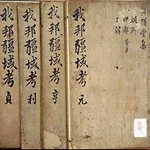 我邦疆域考 元
我邦疆域考 亨
我邦疆域考 利
我邦疆域考 貞